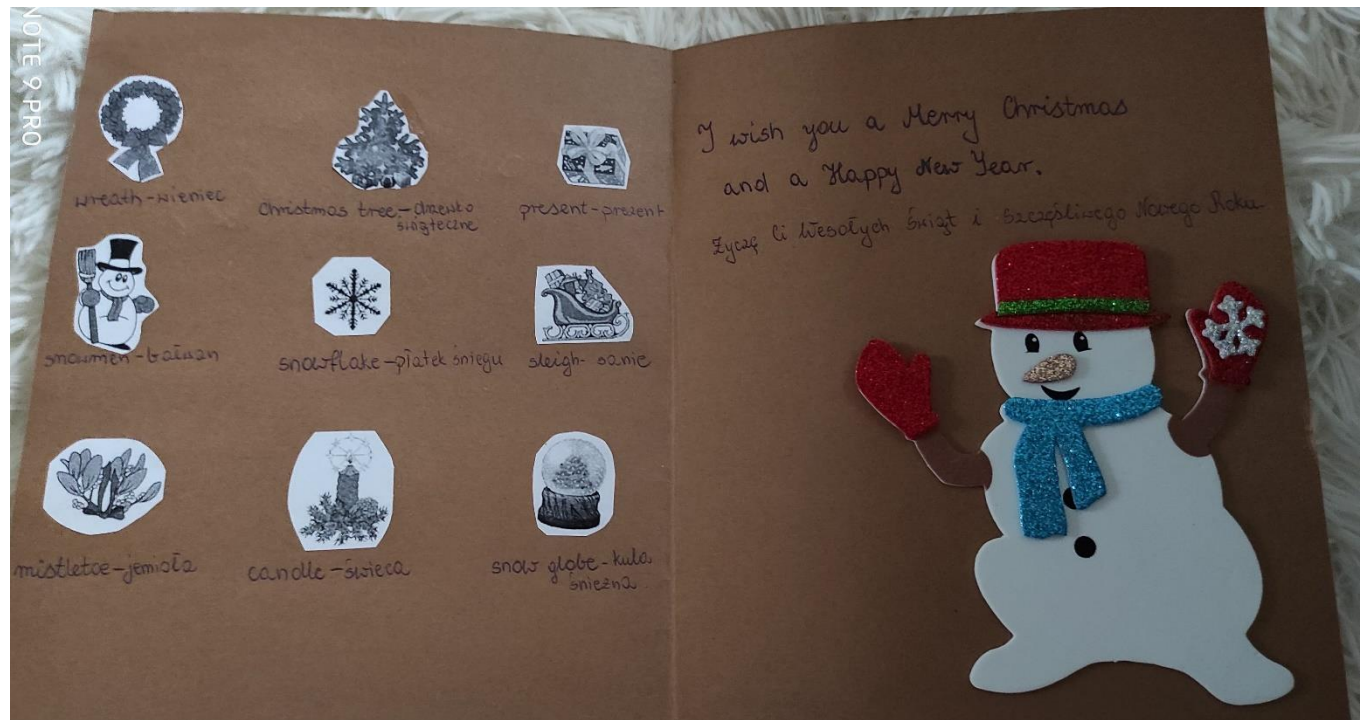 NOTE 9 PRO
wreath-wieniec
Christmas tree-drzewko
świąteczne
present-prezent
snowmen-bałwan
snowflake-płatek śniegu
sleigh-sanie
mistletoe-jemioła
candle-świeca
snow globe-kula
śnieżna
I wish you a Merry Christmas
and a Happy New Year.
Życzę Ci Wesołych Świąt i Szczęśliwego Nowego Roku